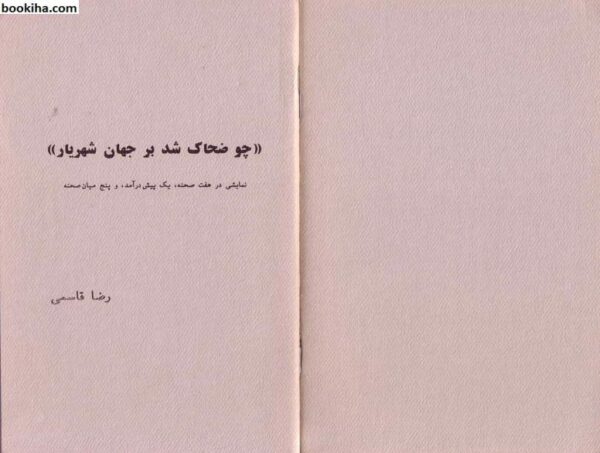 bookiha.com
«چو ضحاک شد بر جهان شهریار»
نمایشی در هفت صحنه، یک پیش‌درآمد، و پنج میان‌صحنه
رضا قاسمی